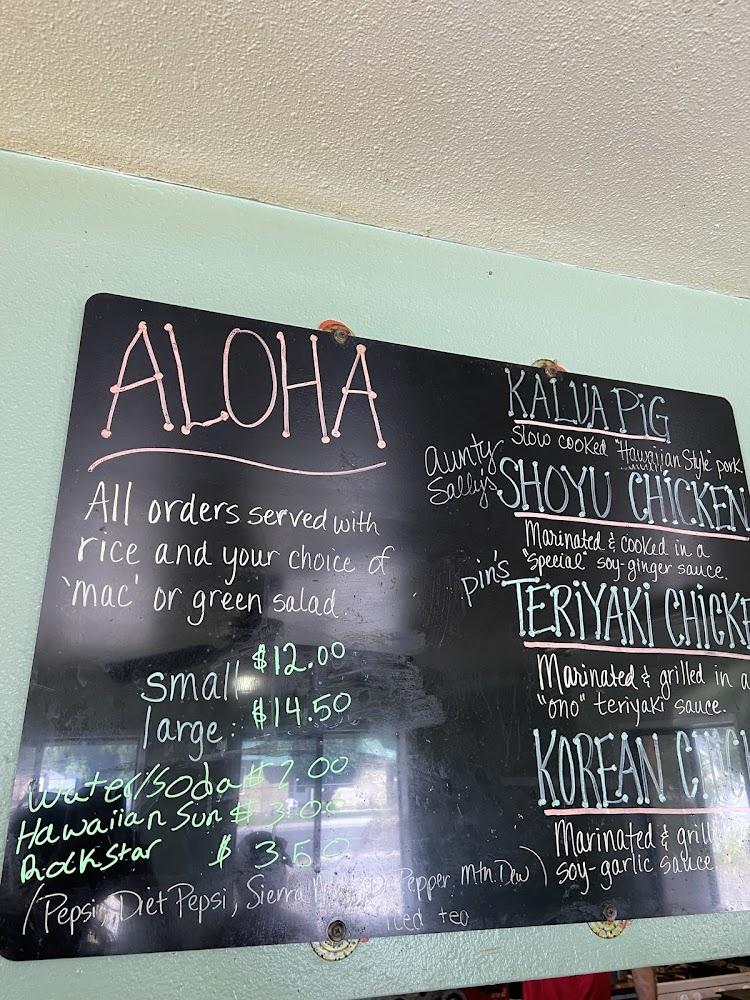 ALOHA
All orders served with
rice and your choice of
'mac' or green salad.
small $12.00
large: $14.50
Water/Soda $2.00
Hawaiian Sun $3.00
RockStar $3.50
(Pepsi, Diet Pepsi, Sierra Pepper, Mtn. Dew)
iced tea
KALUA PiG
Slow cooked Hawaiian Style pork
aunty
Sally's SHOYU CHiCKEN
Marinated & cooked in a
"special" soy-ginger sauce.
pin's
TERiYAKi CHiCKE
Marinated & grilled in a
"ono" teriyaki sauce.
KOREAN
Marinated & grill
soy-garlic sauce